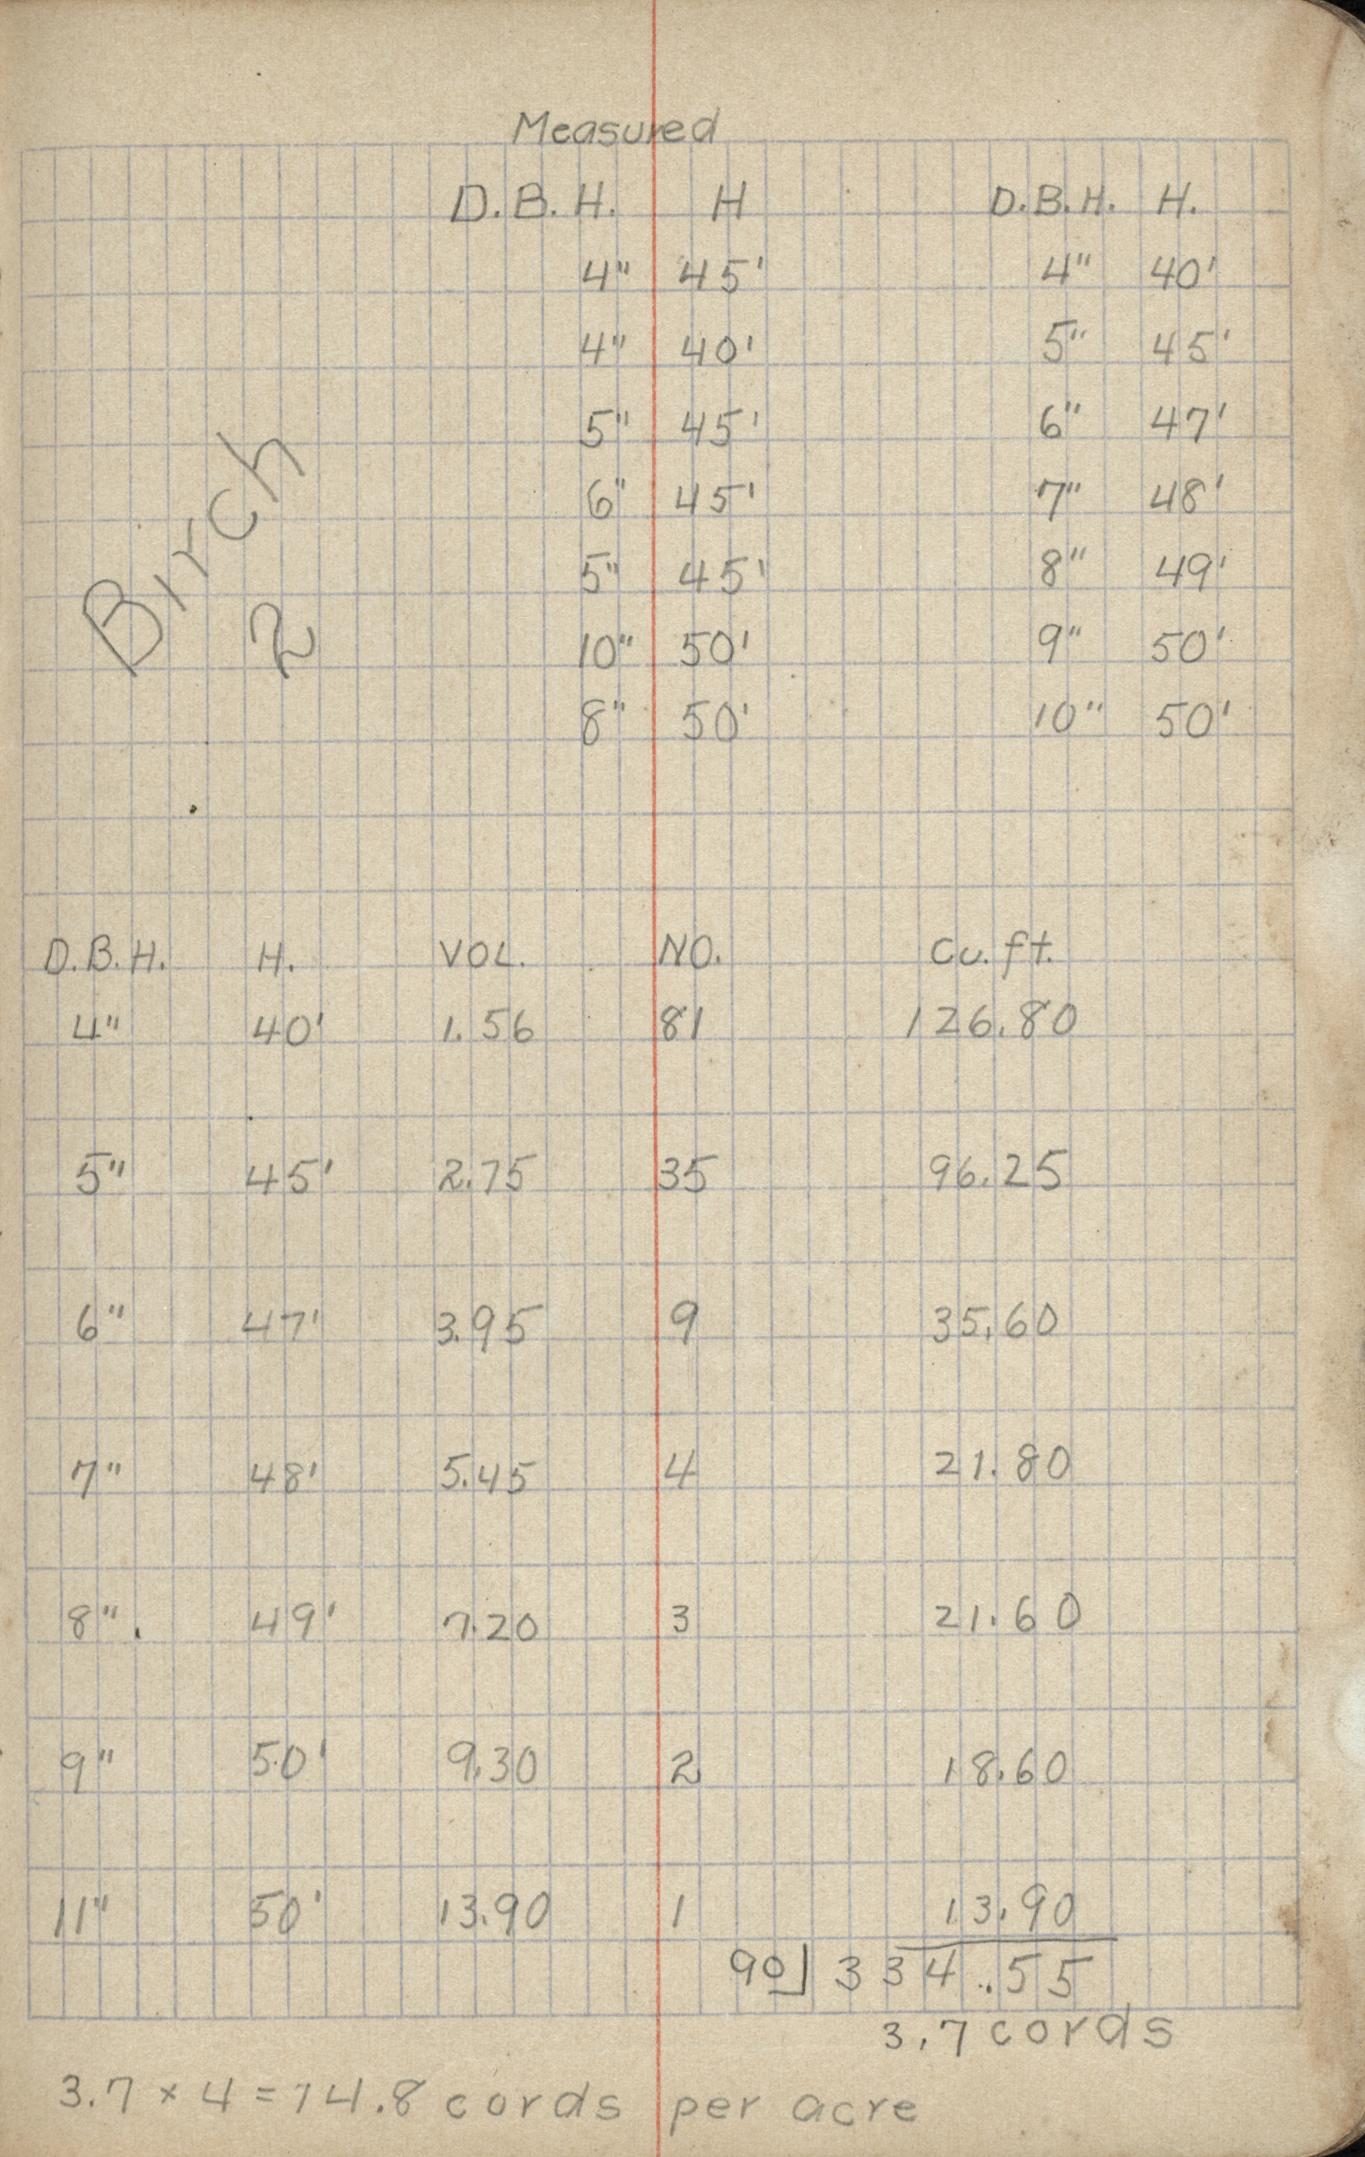 Measured
D.B.H. H D.B.H. H.
4" 45' 4" 40'
4" 40' 5" 45'
5" 45' 6" 47'
6" 45' 7" 48'
5" 45' 8" 49'
10" 50' 9" 50'
8" 50' 10" 50'
Birch
2
D.B.H. H. VOL. NO. Cu. ft.
4" 40' 1.56 81 126.80
5" 45' 2.75 35 96.25
6" 47' 3.95 9 35.60
7" 48' 5.45 4 21.80
8". 49' 7.20 3 21.60
9" 50' 9.30 2 18.60
11" 50' 13.90 1 13.90
90 334.55
3.7 cords
3.7 × 4 = 14.8 cords per acre